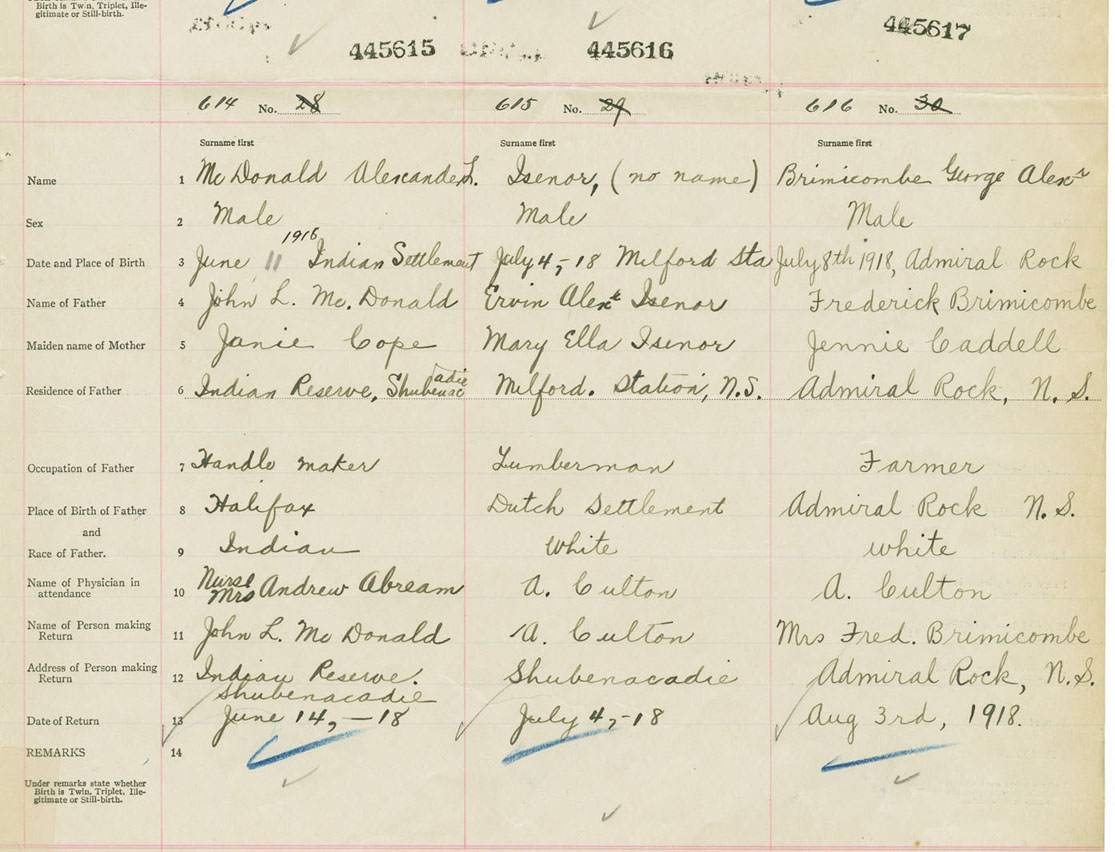 Birth is Twin, Triplet, Ille-
gitimate or Still-birth.
445615 445616 445617
614 No. 28 615 No. 29 616 No. 30
Surname first Surname first Surname first
Name 1 McDonald Alexander L. Isenor, (no name) Brimicombe George Alexr
Sex 2 Male Male Male
1918
Date and Place of Birth 3 June 11 Indian Settlement July 4,-18 Milford Sta July 8th 1918, Admiral Rock
Name of Father 4 John L. Mc. Donald Ervin Alexr Isenor Frederick Brimicombe
Maiden name of Mother 5 Janie Cope Mary Ella Isenor Jennie Caddell
Residence of Father 6 Indian Reserve, Shubenacadie Milford. Station, N.S. Admiral Rock, N. S.
Occupation of Father 7 Handle maker Lumberman Farmer
Place of Birth of Father 8 Halifax Dutch Settlement Admiral Rock N. S.
and
Race of Father. 9 Indian White white
Name of Physician in
attendance 10 Nurse Mrs Andrew Abream A. Culton A. Culton
Name of Person making
Return 11 John L. Mc Donald A. Culton Mrs Fred. Brimicombe
Address of Person making
Return 12 Indian Reserve. Shubenacadie Shubenacadie Admiral Rock, N.S.
Date of Return 13 June 14,-18 July 4,-18 Aug 3rd, 1918.
REMARKS 14
Under remarks state whether
Birth is Twin, Triplet, Ille-
gitimate or Still-birth.